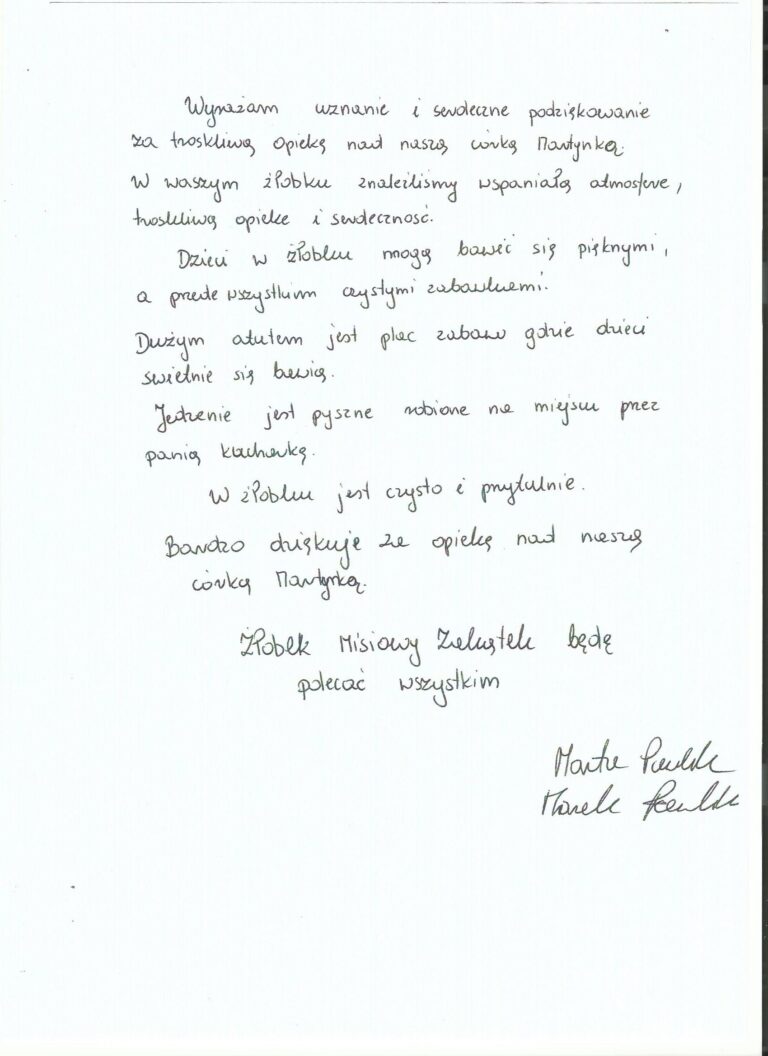 Wyrażam uznanie i serdeczne podziękowanie
za troskliwą opiekę nad naszą córką Martynką.
W waszym żłobku znaleźliśmy wspaniałą atmosferę,
troskliwą opiekę i serdeczność.
Dzieci w żłobku mogą bawić się pięknymi,
a przede wszystkim czystymi zabawkami.
Dużym atutem jest plac zabaw gdzie dzieci
świetnie się bawią.
Jedzenie jest pyszne robione na miejscu przez
panią kucharkę.
W żłobku jest czysto i przytulnie.
Bardzo dziękuje za opiekę nad naszą
córką Martynką.
Żłobek Misiowy Zakątek będę
polecać wszystkim
Marta
Marek